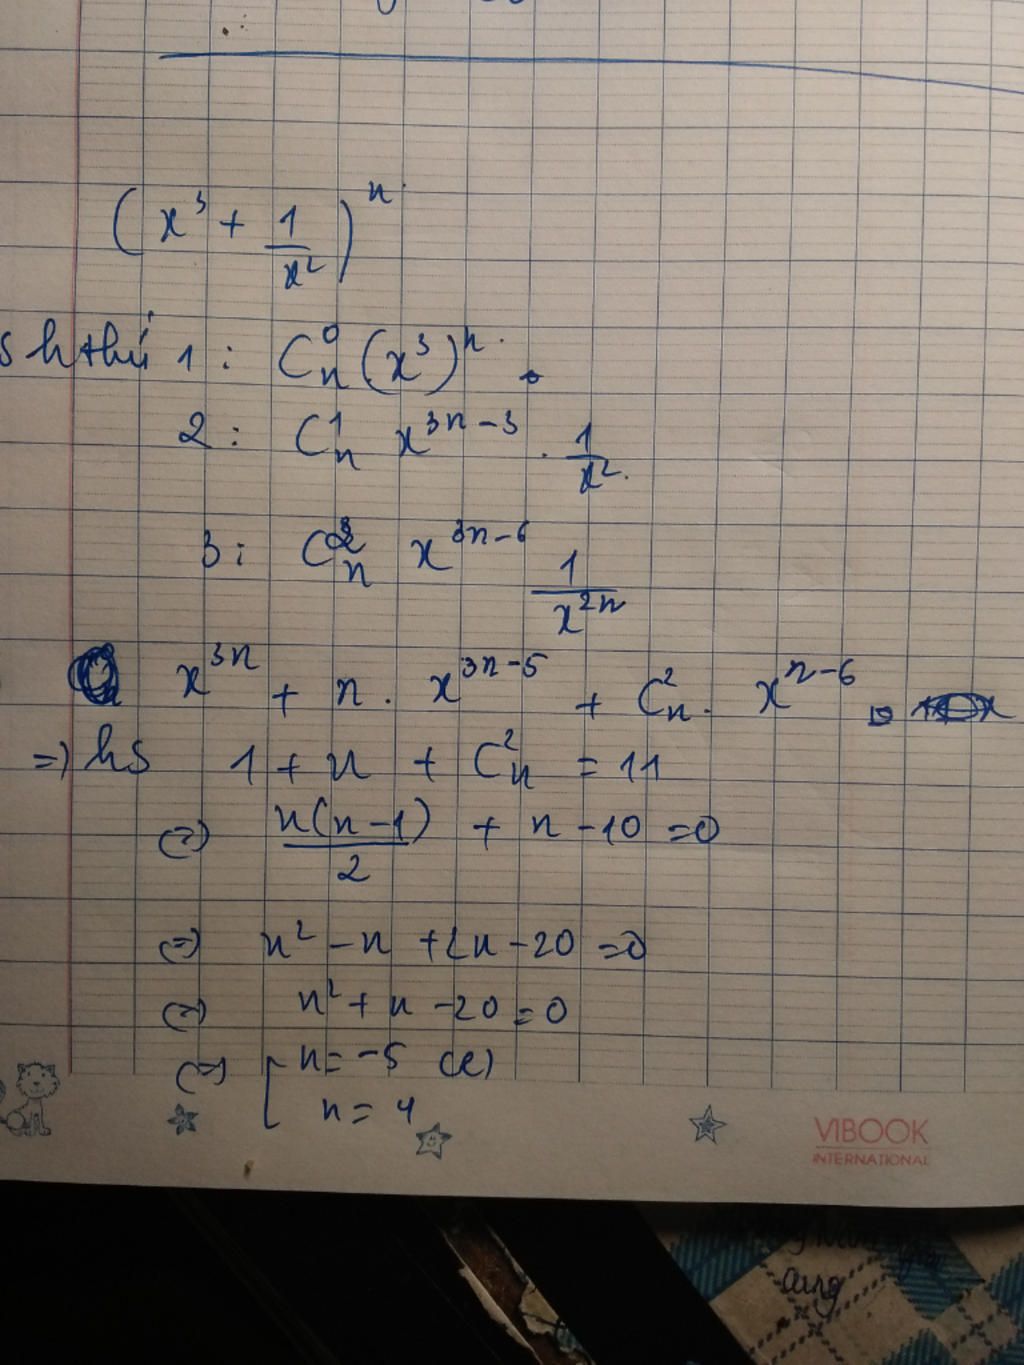 (x³ + 1/x²)ⁿ
sh thứ 1 : Cₙ⁰ (x³)ⁿ .
2 : Cₙ¹ x³ⁿ⁻³ . 1/x².
3 : Cₙ² x³ⁿ⁻⁶ 1/x²ⁿ
x³ⁿ + n . x³ⁿ⁻⁵ + Cₙ² . xⁿ⁻⁶
=) hs 1 + n + Cₙ² = 11
(=) n(n-1)/2 + n - 10 = 0
(=) n² - n + 2n - 20 = 0
(=) n² + n - 20 = 0
(=) [ n = -5 (l)
n = 4
VIBOOK
INTERNATIONAL